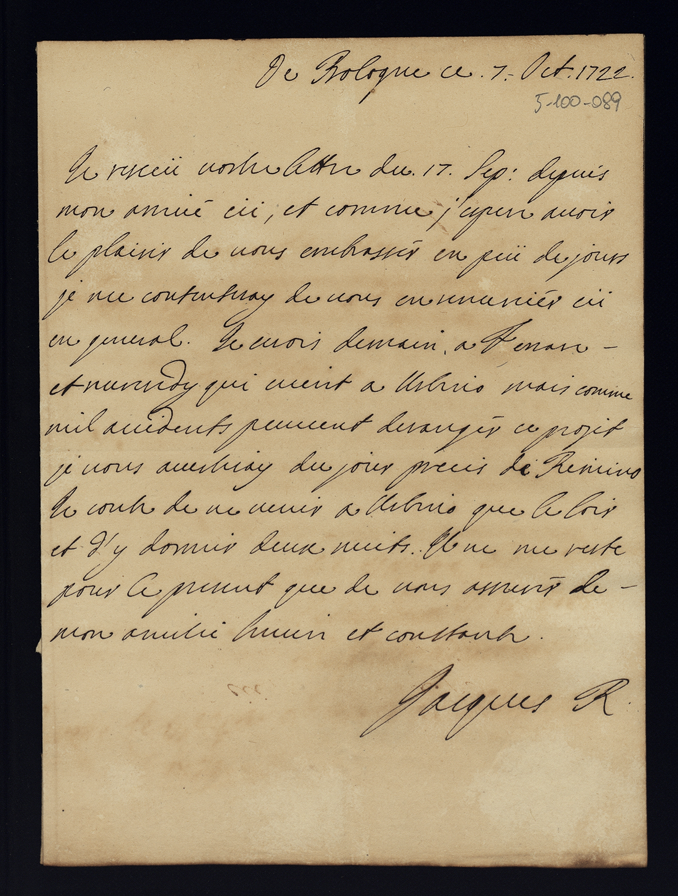 De Bologne ce . 7. Oct. 1722.
5-100-089
Je receü vostre lettre du . 17. Sep: depuis
mon arrivé ici, et comme j'espere avoir
le plaisir de vous embrasser en peü de jours
je me contenteray de vous en remercier ici
en general. Je serois demain, a
et qui vient a Urbino mais comme
mil accidents peuvent deranger ce projet
je vous avertiray du jour precis de Rimino
Je conte de ne venir a Urbino que le soir
et d'y dormir deux nuits. Il ne me reste
pour le present que de vous assurer de -
mon amitié sincere et constante.
Jacques R.